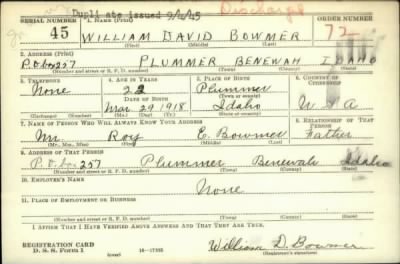 Duplicate issued 9/4/45
Discharge
SERIAL NUMBER 1. NAME (Print) ORDER NUMBER
45 WILLIAM DAVID BOWMER 72
(First) (Middle) (Last)
2. ADDRESS (Print)
P.O. box 257 PLUMMER BENEWAH IDAHO
(Number and street or R. F. D. number) (Town) (County) (State)
3. TELEPHONE 4. AGE IN YEARS 5. PLACE OF BIRTH 6. COUNTRY OF CITIZENSHIP
None 22 Plummer
(Town or county)
DATE OF BIRTH
Mar. 29 1918 Idaho U S A
(Exchange) (Number) (Mo.) (Day) (Yr.) (State or country)
7. NAME OF PERSON WHO WILL ALWAYS KNOW YOUR ADDRESS 8. RELATIONSHIP OF THAT PERSON
Mr. Roy E. Bowmer Father
(Mr., Mrs., Miss) (First) (Middle) (Last)
9. ADDRESS OF THAT PERSON
P.O. box 257 Plummer Benewah Idaho
(Number and street or R. F. D. number) (Town) (County) (State)
10. EMPLOYER'S NAME
None
11. PLACE OF EMPLOYMENT OR BUSINESS
(Number and street or R. F. D. number) (Town) (County) (State)
I AFFIRM THAT I HAVE VERIFIED ABOVE ANSWERS AND THAT THEY ARE TRUE.
REGISTRATION CARD
D. S. S. Form 1 (over) 16-17105 William D. Bowmer
(Registrant's signature)